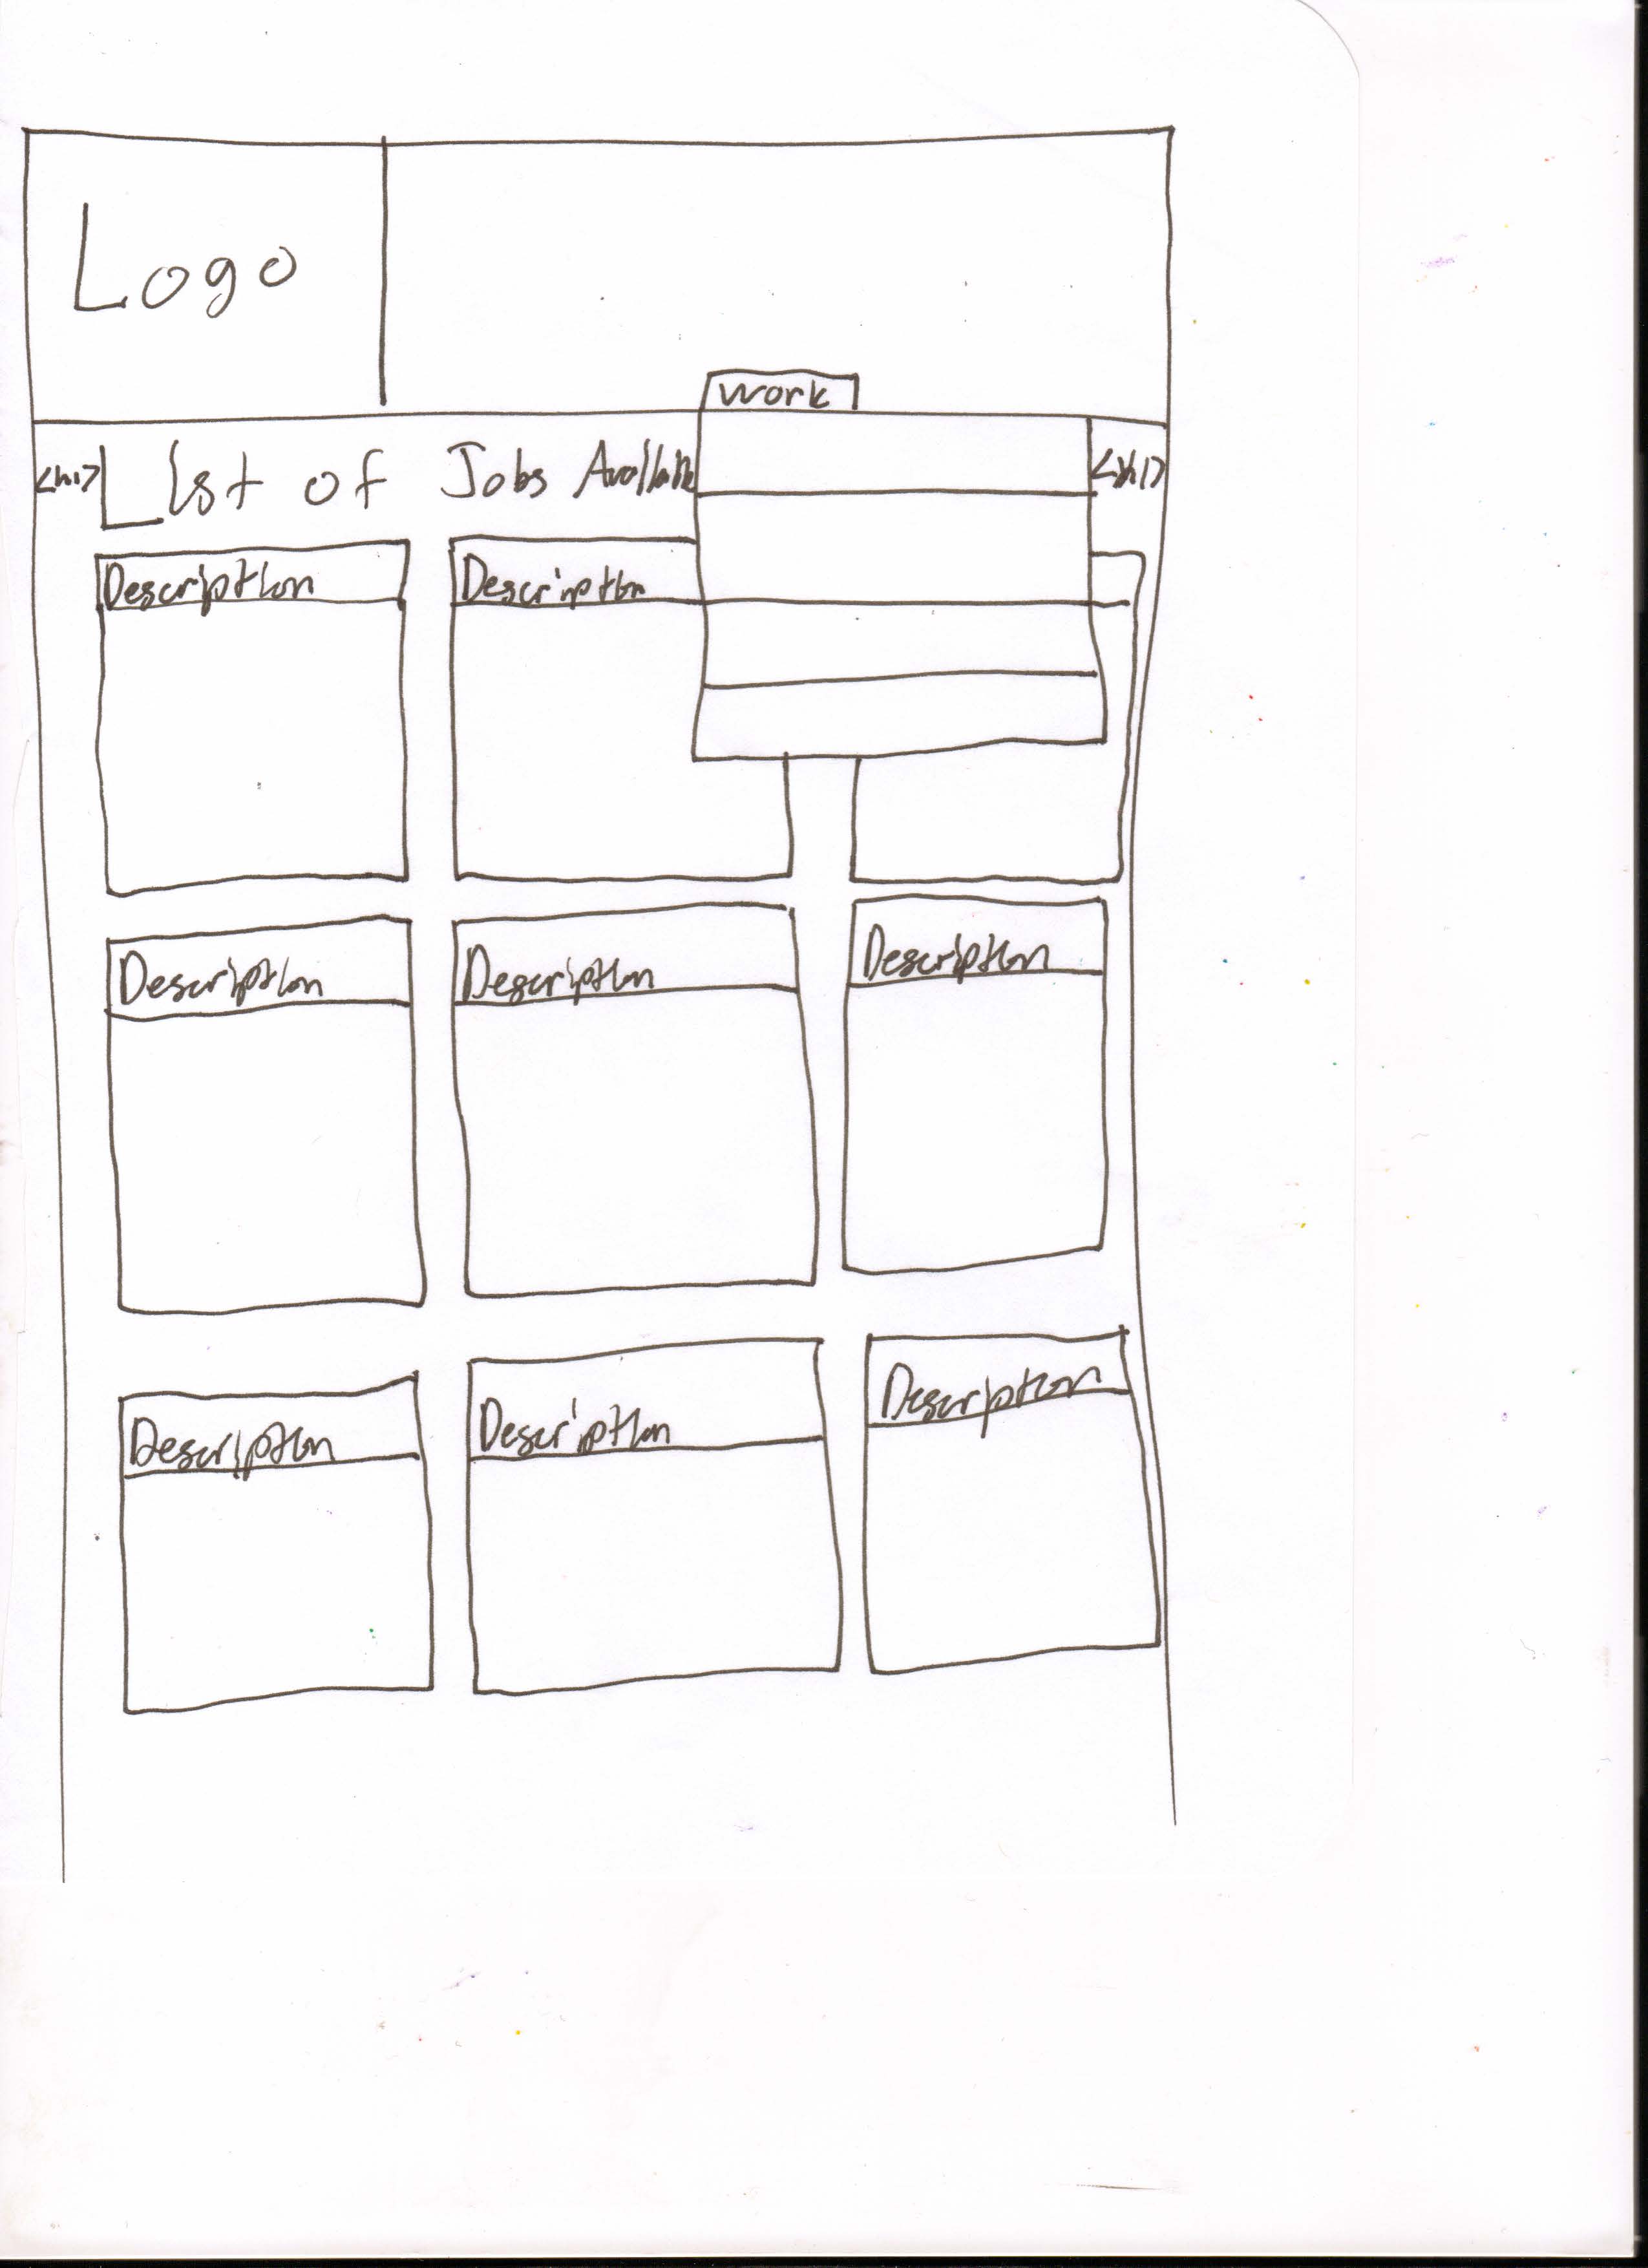 Logo
Work
<h1> List of Jobs Available <h1>
Description Description
Description Description Description
Description Description Description